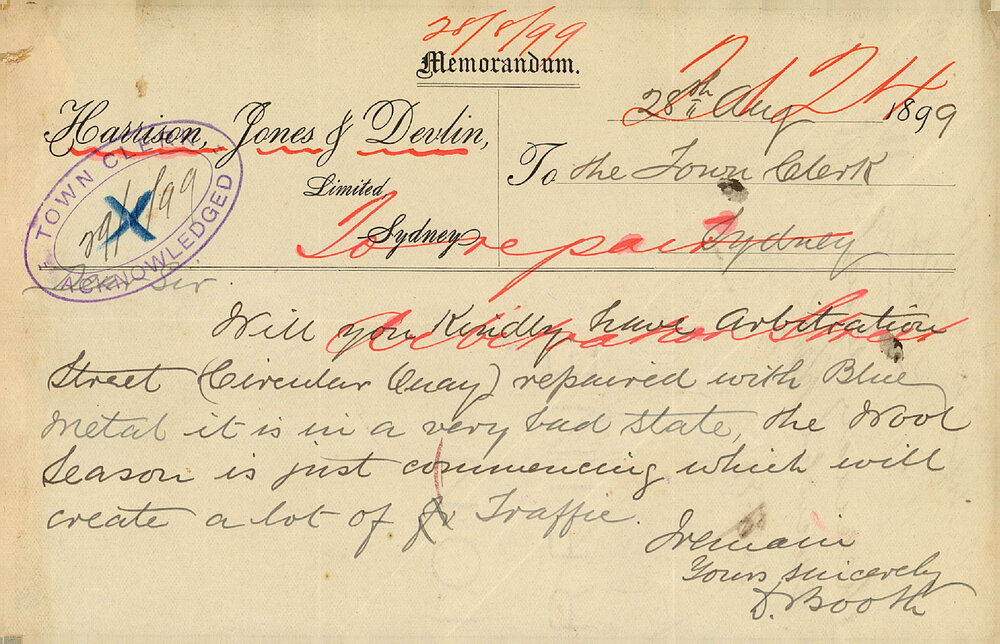 28/8/99
Memorandum.
28th Aug 1899
Harrison, Jones & Devlin,
Limited,
Sydney
To the Town Clerk
Sydney
TOWN CLERK
29/8/99
X
ACKNOWLEDGED
To repair
Arbitration Street
Dear Sir
Will you Kindly have Arbitration
Street (Circular Quay) repaired with Blue
Metal it is in a very bad state, the Wool
Season is just commencing which will
create a lot of Traffic.
I remain
Yours sincerely
D. Booth